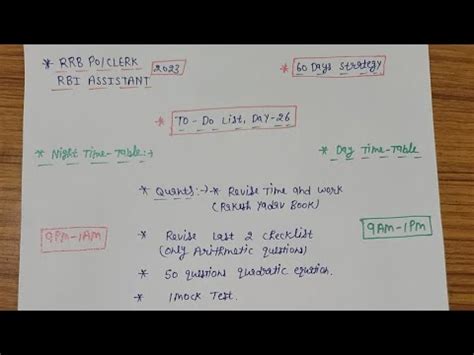 * RRB PO/CLERK 2023 * 60 Days Strategy
RBI ASSISTANT
* TO-DO LIST, DAY-26
* Night Time-Table:→ * Day Time-Table
* Quants:→ * Revise Time and work
(Rakesh Yadav Book)
9PM-1AM 9AM-1PM
* Revise last 2 checklist
(only Arithmetic questions)
* 50 questions quadratic equation.
* 1 Mock Test.